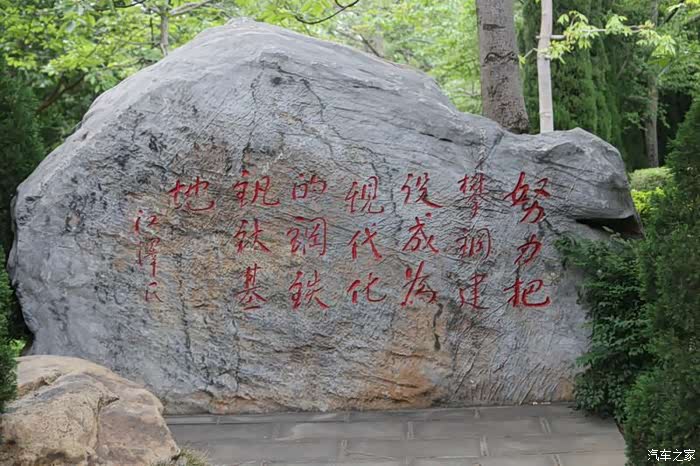 努力把
攀钢建
设成为
现代化
的钢铁
钒钛基
地
江泽民
汽车之家